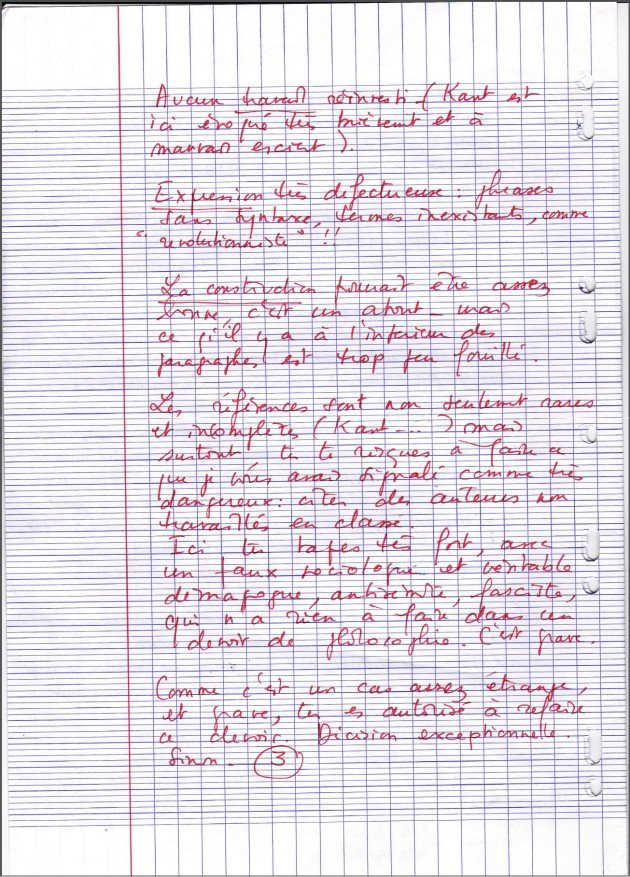 Aucun travail réinvesti (Kant est
ici évoqué très brièvemt et à
mauvais escient).
Expression très défectueuse : phrases
sans syntaxe, termes inexistants, comme
"révolutionniste" !!
La construction pourrait être assez
bonne, c'est un atout – mais
ce qu'il y a à l'intérieur des
paragraphes est trop peu fouillé.
Les références sont non seulemt rares
et incomplètes (Kant ... ) mais
surtout tu te risques à faire ce
que je vous avais signalé comme très
dangereux : citer des auteurs non
travaillés en classe.
Ici tu tapes très fort, avec
un faux sociologue et véritable
démagogue, antisémite, fasciste,
qui n'a rien à faire dans un
devoir de philosophie. C'est grave.
Comme c'est un cas assez étrange,
et grave, tu es autorisé à refaire
ce devoir. Décision exceptionnelle.
Sinon – 3